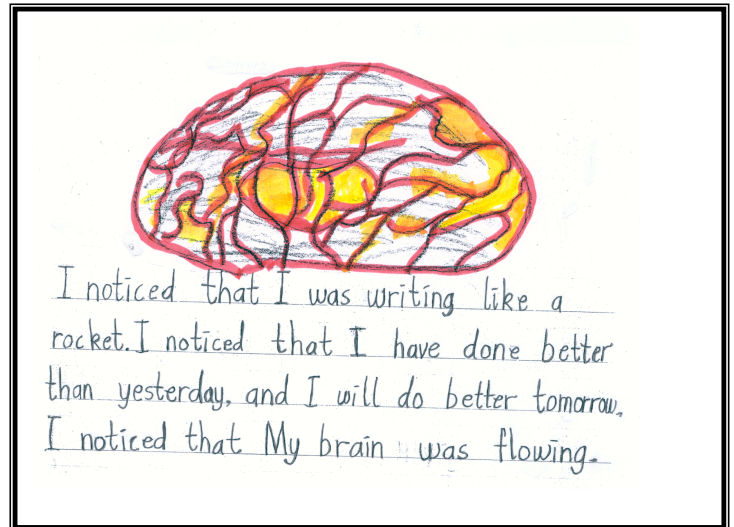 I noticed that I was writing like a
rocket. I noticed that I have done better
than yesterday, and I will do better tomorrow.
I noticed that My brain was flowing.